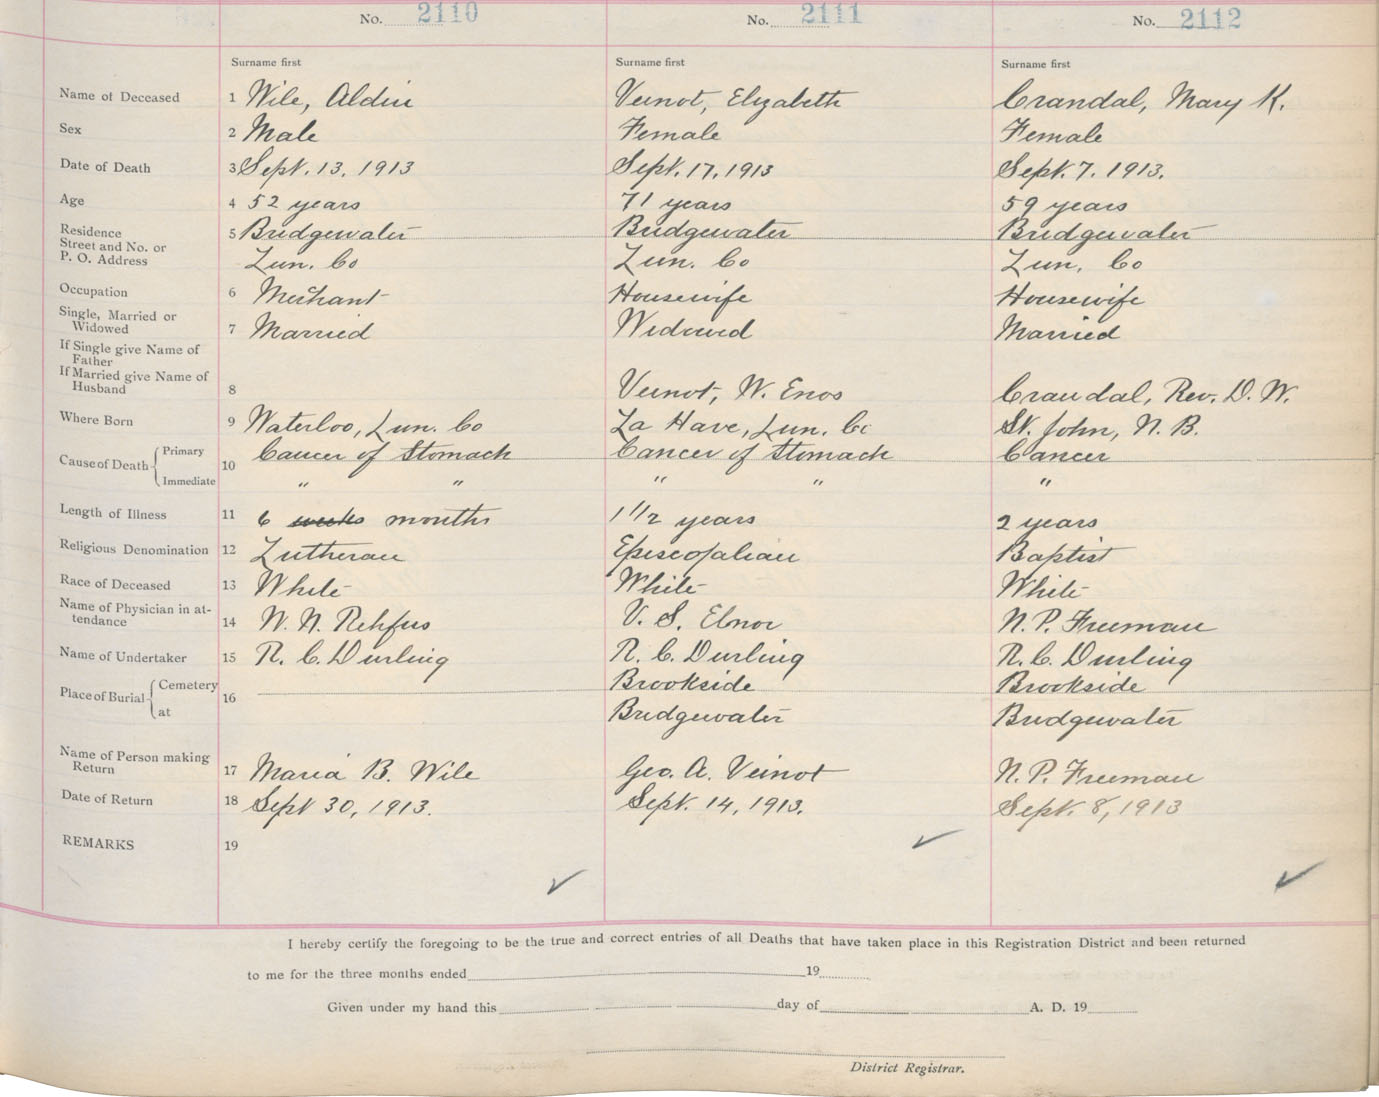 No. 2110 No. 2111 No. 2112
Surname first Surname first Surname first
Name of Deceased 1 Wile, Aldin Veinot, Elizabeth Crandal, Mary K.
Sex 2 Male Female Female
Date of Death 3 Sept. 13, 1913 Sept. 17, 1913 Sept. 7. 1913.
Age 4 52 years 71 years 59 years
Residence 5 Bridgewater Bridgewater Bridgewater
Street and No. or
P. O. Address Lun. Co Lun. Co Lun. Co
Occupation 6 Merchant Housewife Housewife
Single, Married or
Widowed 7 Married Widowed Married
If Single give Name of
Father
If Married give Name of
Husband 8 Veinot, W. Enos Crandal, Rev. D. W.
Where Born 9 Waterloo, Lun. Co La Have, Lun. Co St. John, N. B.
Cause of Death Primary 10 Cancer of Stomach Cancer of Stomach Cancer
Immediate " " " " "
Length of Illness 11 6 weeks months 1 1/2 years 2 years
Religious Denomination 12 Lutheran Episcopalian Baptist
Race of Deceased 13 White White White
Name of Physician in at-
tendance 14 W. N. Rehfus V. S. N. P. Freeman
Name of Undertaker 15 R. C. Durling R. C. Durling R. C. Durling
Place of Burial Cemetery 16 Brookside Brookside
at Bridgewater Bridgewater
Name of Person making
Return 17 Maria B. Wile Geo. A. Veinot N. P. Freeman
Date of Return 18 Sept 30, 1913. Sept. 14, 1913. Sept. 8, 1913
REMARKS 19
I hereby certify the foregoing to be the true and correct entries of all Deaths that have taken place in this Registration District and been returned
to me for the three months ended 19
Given under my hand this day of A. D. 19
District Registrar.